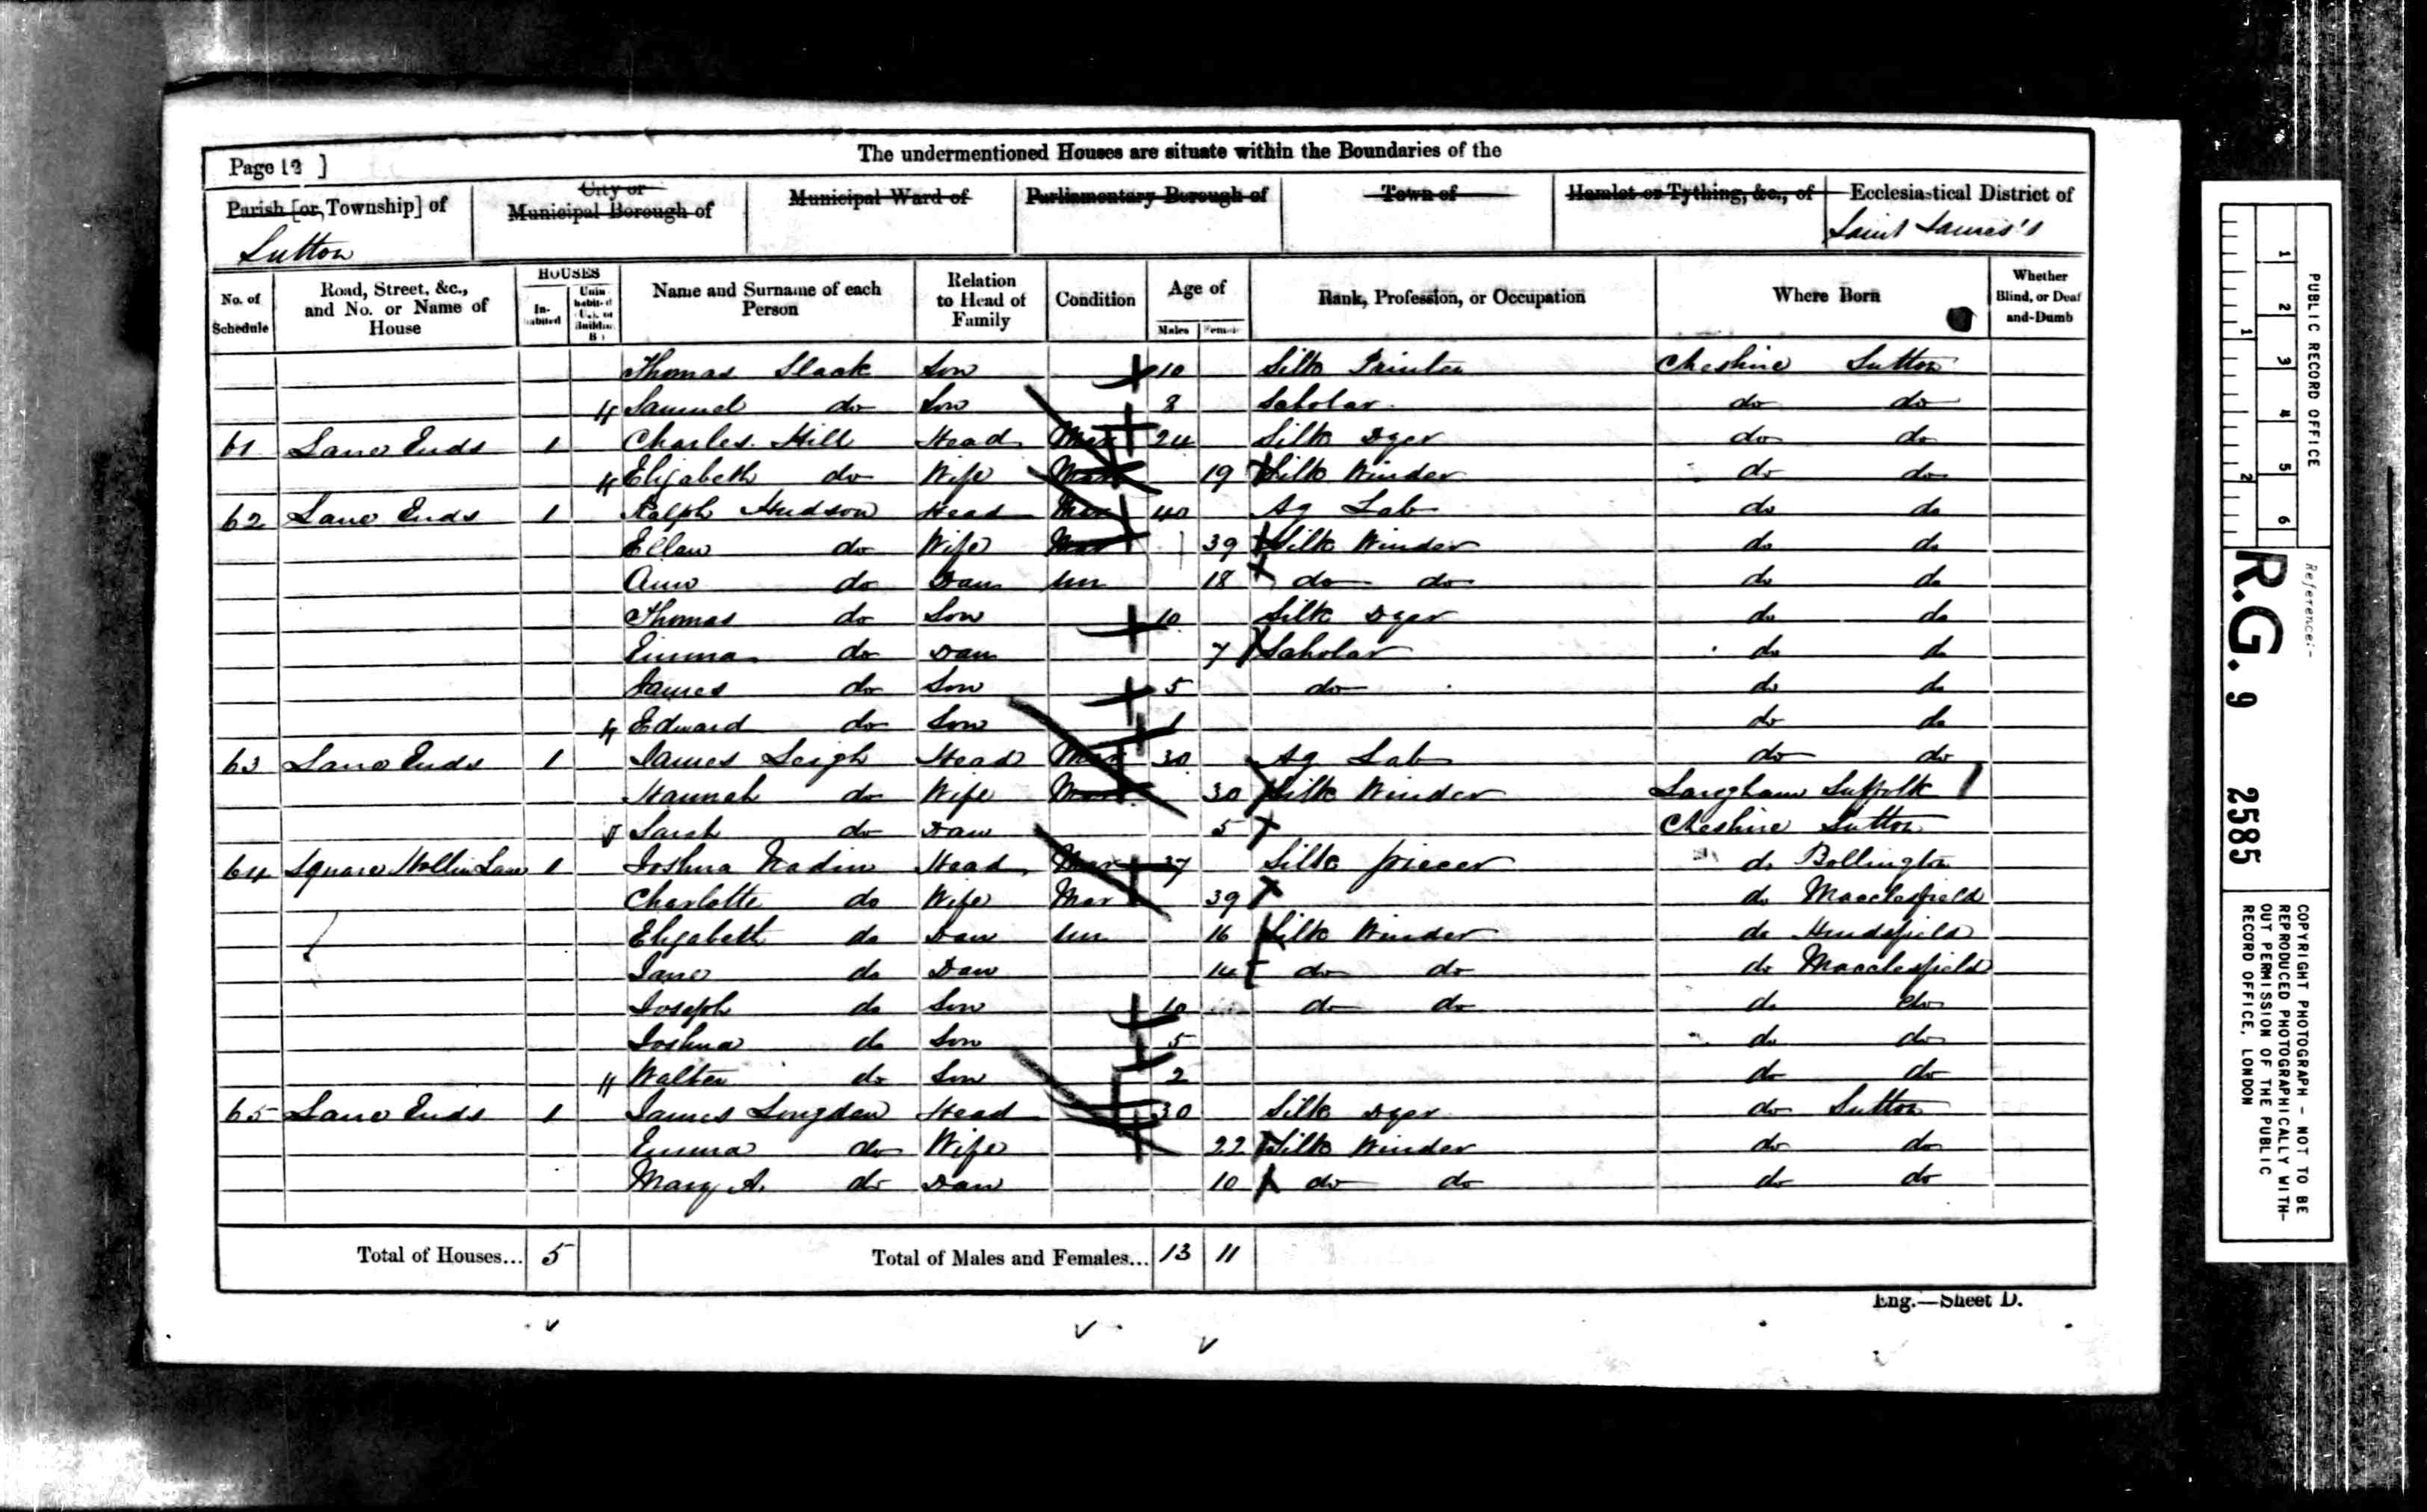 The undermentioned Houses are situate within the Boundaries of the
Page 12 ]
Parish [or Township] of
City or Municipal Borough of
Municipal Ward of
Parliamentary Borough of
Town of
Hamlet or Tything, &c., of
Ecclesiastical District of
Sutton
Saint James's
No. of Schedule
Road, Street, &c., and No. or Name of House
HOUSES
In-habited
Name and Surname of each Person
Relation to Head of Family
Condition
Age of
Males
Rank, Profession, or Occupation
Where Born
Whether Blind, or Deaf and-Dumb
Thomas Slack Son 10 Silk Printer Cheshire Sutton
Samuel do Son 8 Scholar do do
61 Lane Ends 1 Charles Hill Head Mar 24 Silk Dyer do do
Elizabeth do Wife Mar 19 Silk Winder do do
62 Lane Ends 1 Ralph Hudson Head Mar 40 Ag Lab do do
Ellen do Wife Mar 39 Silk Winder do do
Ann do Daur Un 18 do do do do
Thomas do Son 10 Silk Dyer do do
Emma do Daur 7 Scholar do do
James do Son 5 do do do
Edward do Son 1 do do
63 Lane Ends 1 James Leigh Head Mar 30 Ag Lab do do
Hannah do Wife Mar 30 Silk Winder Langham Suffolk
Sarah do Daur 5 Cheshire Sutton
64 Square Hollin Lane 1 Joshua Wadin Head Mar 37 Silk piecer do Bollington
Charlotte do Wife Mar 39 do Macclesfield
Elizabeth do Daur Un 16 Silk Winder do Hurdsfield
Jane do Daur 14 do do do Macclesfield
Joseph do Son 10 do do do do
Joshua do Son 5 do do
Walter do Son 2 do do
65 Lane Ends 1 James Longden Head 30 Silk Dyer do Sutton
Emma do Wife 22 Silk Winder do do
Mary A. do Daur 10 do do do do
Total of Houses... 5
Total of Males and Females... 13 11
Eng.—Sheet D.
PUBLIC RECORD OFFICE
1 2 3 4 5 6
1 2
Reference:-
R.G. 9 2585
COPYRIGHT PHOTOGRAPH - NOT TO BE
REPRODUCED PHOTOGRAPHICALLY WITH-
OUT PERMISSION OF THE PUBLIC
RECORD OFFICE, LONDON